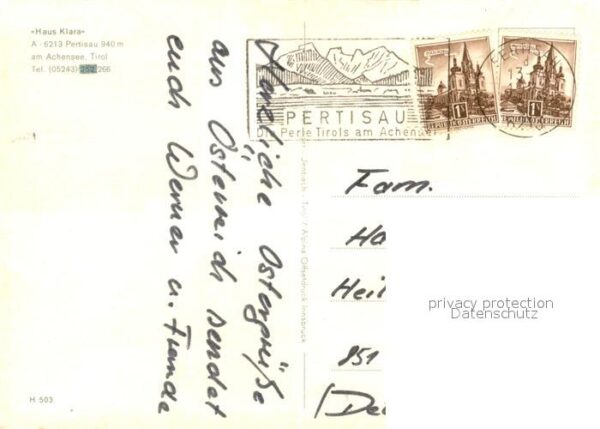 «Haus Klara»
A - 6213 Pertisau 940 m
am Achensee, Tirol
Tel. (05243) 266
Herzliche Ostergrüße
aus Österreich sendet
euch Werner u. Freunde
H 503
PERTISAU
Die Perle Tirols am Achensee
1
REPUBLIK ÖSTERREICH
1
REPUBLIK ÖSTERREICH
Tirol / Alpina Offsetdruck Innsbruck
Fam.
Ha
Heil
851
(De
privacy protection
Datenschutz